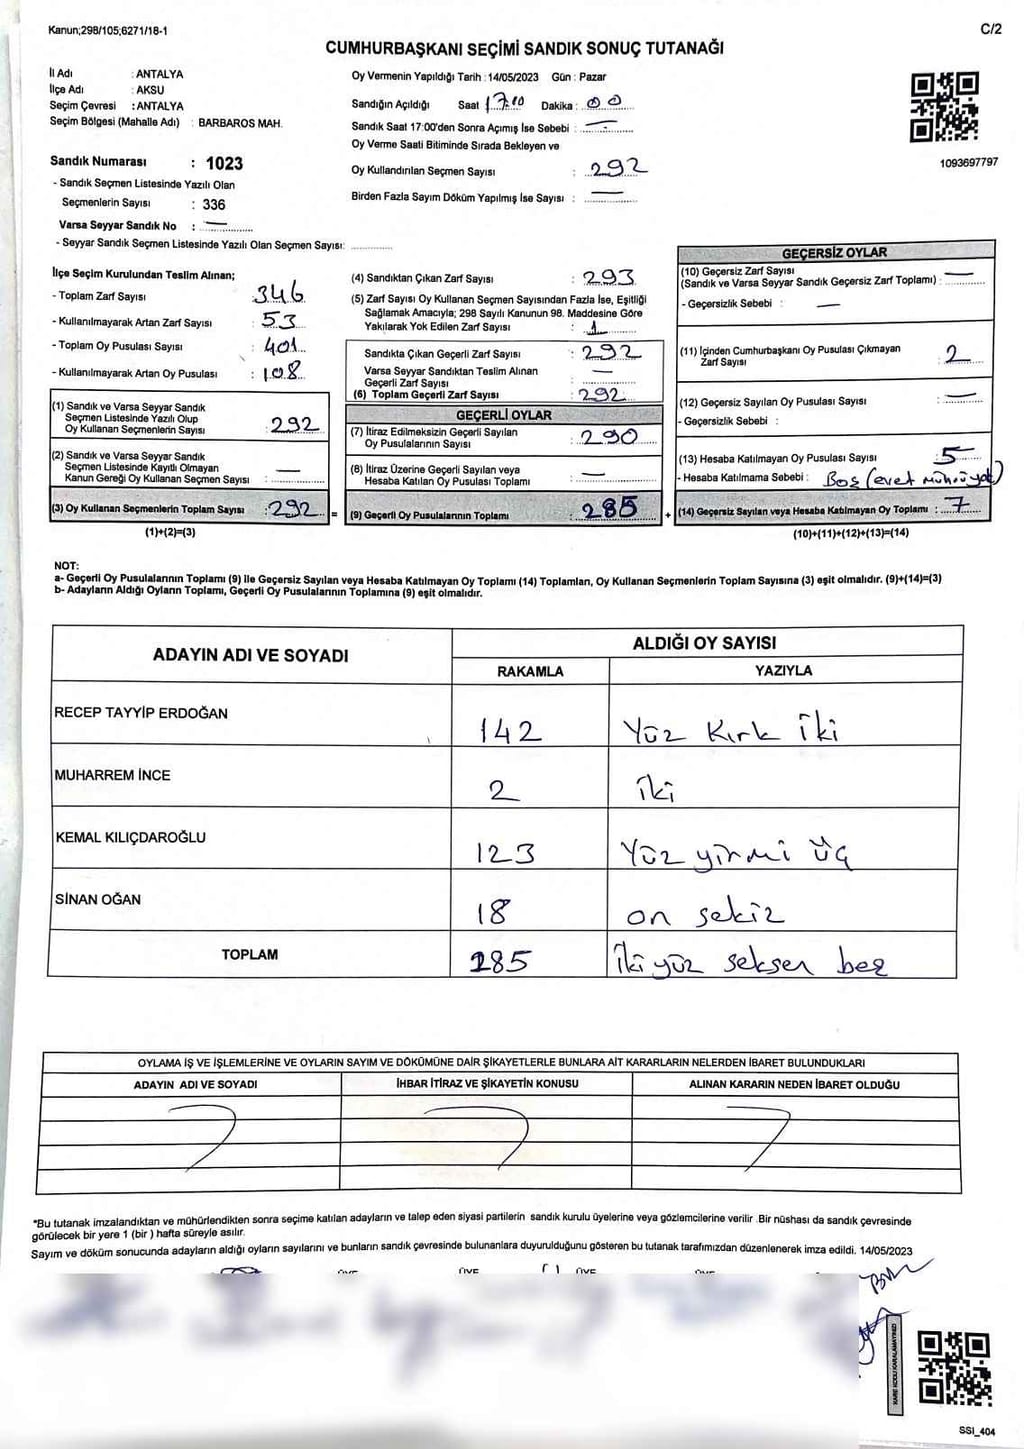 Kanun;298/105;6271/18-1
C/2
CUMHURBAŞKANI SEÇİMİ SANDIK SONUÇ TUTANAĞI
İl Adı : ANTALYA
İlçe Adı : AKSU
Seçim Çevresi : ANTALYA
Seçim Bölgesi (Mahalle Adı) : BARBAROS MAH.
Sandık Numarası : 1023
- Sandık Seçmen Listesinde Yazılı Olan
Seçmenlerin Sayısı : 336
Varsa Seyyar Sandık No :
- Seyyar Sandık Seçmen Listesinde Yazılı Olan Seçmen Sayısı:
Oy Vermenin Yapıldığı Tarih : 14/05/2023 Gün : Pazar
Sandığın Açıldığı Saat Dakika :
Sandık Saat 17:00'den Sonra Açımış İse Sebebi :
Oy Verme Saati Bitiminde Sırada Bekleyen ve
Oy Kullandırılan Seçmen Sayısı : 292
Birden Fazla Sayım Döküm Yapılmış İse Sayısı :
1093697797
İlçe Seçim Kurulundan Teslim Alınan;
- Toplam Zarf Sayısı : 346
- Kullanılmayarak Artan Zarf Sayısı : 53
- Toplam Oy Pusulası Sayısı : 401
- Kullanılmayarak Artan Oy Pusulası : 108
(1) Sandık ve Varsa Seyyar Sandık
Seçmen Listesinde Yazılı Olup
Oy Kullanan Seçmenlerin Sayısı : 292
(2) Sandık ve Varsa Seyyar Sandık
Seçmen Listesinde Kayıtlı Olmayan
Kanun Gereği Oy Kullanan Seçmen Sayısı : —
(3) Oy Kullanan Seçmenlerin Toplam Sayısı : 292 =
(1)+(2)=(3)
(4) Sandıktan Çıkan Zarf Sayısı : 293
(5) Zarf Sayısı Oy Kullanan Seçmen Sayısından Fazla İse, Eşitliği
Sağlamak Amacıyla; 298 Sayılı Kanunun 98. Maddesine Göre
Yakılarak Yok Edilen Zarf Sayısı : 1
Sandıkta Çıkan Geçerli Zarf Sayısı : 292
Varsa Seyyar Sandıktan Teslim Alınan
Geçerli Zarf Sayısı : —
(6) Toplam Geçerli Zarf Sayısı : 292
GEÇERLİ OYLAR
(7) İtiraz Edilmeksizin Geçerli Sayılan
Oy Pusulalarının Sayısı : 290
(8) İtiraz Üzerine Geçerli Sayılan veya
Hesaba Katılan Oy Pusulası Toplamı : —
(9) Geçerli Oy Pusulalarının Toplamı : 285 +
GEÇERSİZ OYLAR
(10) Geçersiz Zarf Sayısı
(Sandık ve Varsa Seyyar Sandık Geçersiz Zarf Toplamı) : —
- Geçersizlik Sebebi : —
(11) İçinden Cumhurbaşkanı Oy Pusulası Çıkmayan
Zarf Sayısı : 2
(12) Geçersiz Sayılan Oy Pusulası Sayısı : —
- Geçersizlik Sebebi :
(13) Hesaba Katılmayan Oy Pusulası Sayısı : 5
- Hesaba Katılmama Sebebi : Boş (evet mührü yok)
(14) Geçersiz Sayılan veya Hesaba Katılmayan Oy Toplamı : 7
(10)+(11)+(12)+(13)=(14)
NOT:
a- Geçerli Oy Pusulalarının Toplamı (9) ile Geçersiz Sayılan veya Hesaba Katılmayan Oy Toplamı (14) Toplamları, Oy Kullanan Seçmenlerin Toplam Sayısına (3) eşit olmalıdır. (9)+(14)=(3)
b- Adayların Aldığı Oyların Toplamı, Geçerli Oy Pusulalarının Toplamına (9) eşit olmalıdır.
ADAYIN ADI VE SOYADI ALDIĞI OY SAYISI
RAKAMLA YAZIYLA
RECEP TAYYİP ERDOĞAN 142 Yüz Kırk iki
MUHARREM İNCE 2 iki
KEMAL KILIÇDAROĞLU 123 Yüz yirmi üç
SİNAN OĞAN 18 on sekiz
TOPLAM 285 iki yüz seksen beş
OYLAMA İŞ VE İŞLEMLERİNE VE OYLARIN SAYIM VE DÖKÜMÜNE DAİR ŞİKAYETLERLE BUNLARA AİT KARARLARIN NELERDEN İBARET BULUNDUKLARI
ADAYIN ADI VE SOYADI İHBAR İTİRAZ VE ŞİKAYETİN KONUSU ALINAN KARARIN NEDEN İBARET OLDUĞU
*Bu tutanak imzalandıktan ve mühürlendikten sonra seçime katılan adayların ve talep eden siyasi partilerin sandık kurulu üyelerine veya gözlemcilerine verilir .Bir nüshası da sandık çevresinde
görülecek bir yere 1 (bir ) hafta süreyle asılır.
Sayım ve döküm sonucunda adayların aldığı oyların sayılarını ve bunların sandık çevresinde bulunanlara duyurulduğunu gösteren bu tutanak tarafımızdan düzenlenerek imza edildi. 14/05/2023
KARE KODU KARALAMAYINIZ!
SSI_404